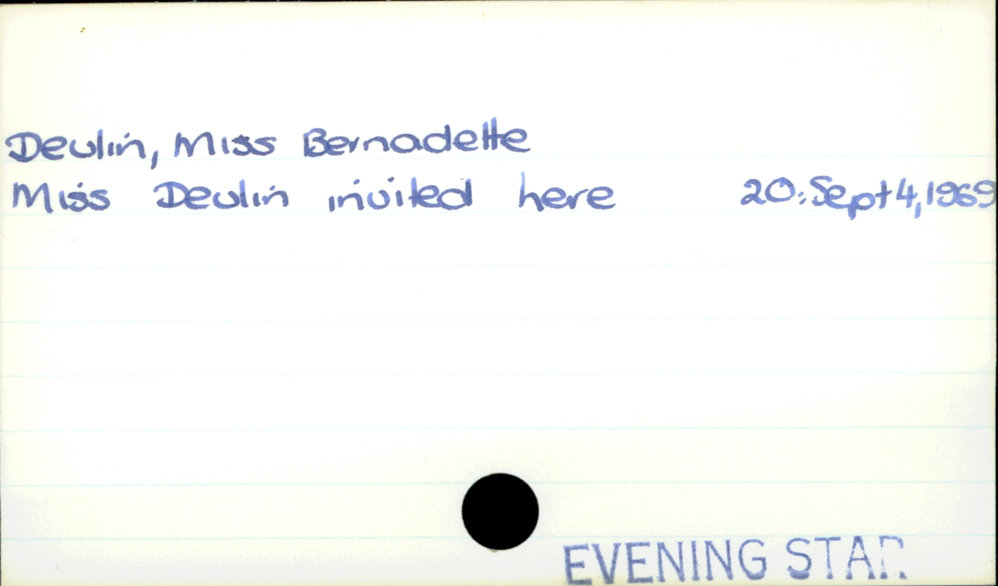 Devlin, Miss Bernadette
Miss Devlin invited here 20: Sept 4, 1969
EVENING STAR